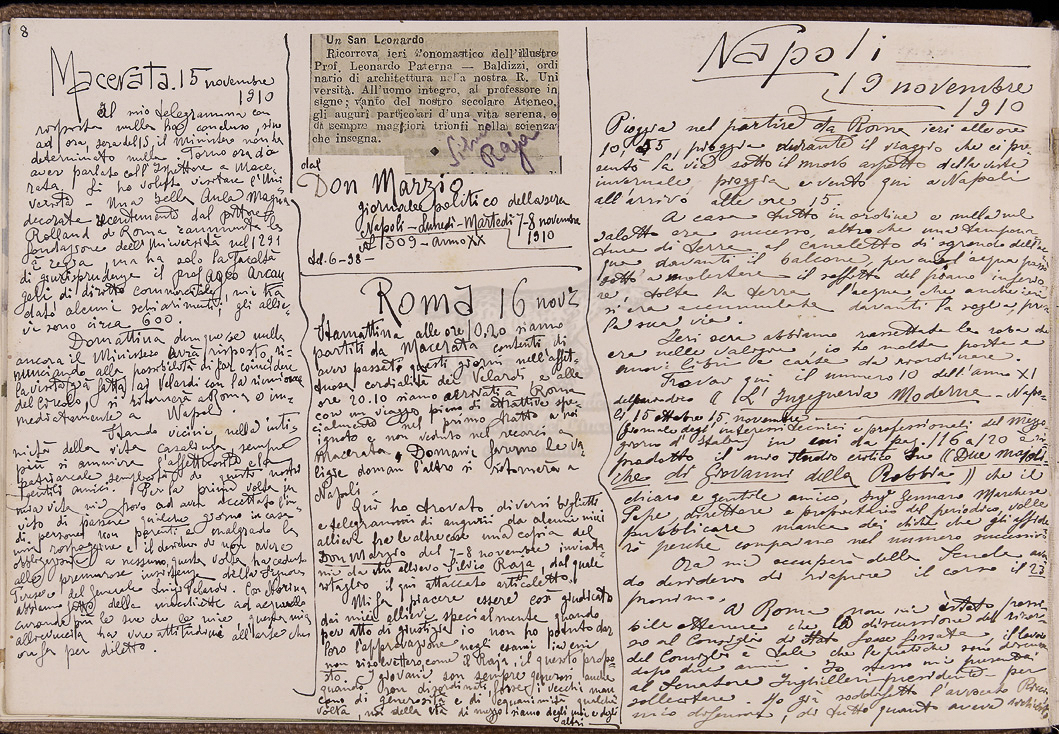 8
Macerata. 15 novembre
1910
Al mio telegramma con
risposta nulla ho concluso, sino
ad ora, sera del 15, il Ministero non ha
determinato nulla. Torno ora da
aver parlato coll'Ispettore a Mace-
rata. Si ho voluto visitare l'Uni
versità - Una bella Aula Magna
decorata recentemente dal pittore
Rolland di Roma rammenta la
fondazione dell'Università nel 1291
È regia, ma ha solo la facoltà
di giurisprudenza il prof. Arcan
geli di diritto commerciale, mi ha
dato alcuni schiarimenti, gli allie-
vi sono circa 600.
Domattina dunque nulla
ancora il Ministero avrà risposto, ri-
nunciando alla possibilità di far coincidere
la visita fatta ai Velardi con la riunione
del Circolo, si ritornerà a Roma o im-
mediatamente a Napoli
Stando vicini nella inti-
mità della vita casalinga sempre
più si ammira l'affettuosità e la
patriarcale semplicità di questi nostri
gentili amici. Per la prima volta in
mia vita mi trovo ad aver accettato l'in-
vito di passare qualche giorno in casa
di persone non parenti ed malgrado la
mia and il desiderio di non avere
obbligazioni a nessuno, questa volta ho ceduto
alle premurose insistenze della Signora
Teresa e del Generale Luigi Velardi. Con
abbiamo fatto delle macchiette ad acquarello
allieva ha vere attitudini all'arte che
ora fa per diletto.
Un San Leonardo
Ricorreva ieri l'onomastico dell'illustre
Prof. Leonardo Paterna - Baldizzi, ordi
nario di architettura nella nostra R. Uni
versità. All'uomo integro, al professore in
signe; vanto del nostro secolare Ateneo,
gli auguri particolari d'una vita serena, e
di sempre maggiori trionfi nella scienza
che insegna.
Silvio
Raja
dal
Don Marzio
giornale politico della sera
Napoli - Lunedì - Martedì 7-8 novembre
N° 1309 - Anno XX 1910
Roma 16 nove
Stamattina alle ore 10.20 siamo
partiti da Macerata contenti di
aver passato questi giorni nell'affet-
tuosa cordialità dei Velardi, e alle
ore 20.10 siamo arrivati a Roma
con un viaggio pieno di attrattive spe-
cialmente nel primo tratto a noi
ignoto e non veduto nel recarci a
Macerata. Domani faremo le va-
ligie doman l'altro si ritornerà a
Napoli.
Qui ho trovato diversi biglietti
e telegrammi di augurii da alcuni miei
allievi fra le altre cose una copia del
Don Marzio del 7-8 novembre inviata
mi da mio allievo Silvio Raja, dal quale
ritaglio il qui attaccato articoletto.
Mi fa piacere essere così giudicato
dai miei allievi specialmente quando
per atto di giustizia io non ho potuto dar
loro l'approvazione negli esami
non risolvettero, come il Raja, il quesito propo-
sto. I giovani son sempre generosi anche
quando son disordinati forse i vecchi man
cano di generosità e di equanimità qualche
volta, noi della età di mezzo siamo degli uni e degli
altri -
Napoli
19 novembre
1910
Pioggia nel partire da Roma ieri alle ore
10.55, pioggia durante il viaggio che ci pre-
sentò la via sotto il nuovo aspetto della veste
invernale, pioggia e vento qui a Napoli
all'arrivo alle ore 15.
A casa tutto in ordine e nulla nel
salotto era successo, altro che una
di terra al canaletto di sgrondo dell'ac
qua davanti il balcone, per cui l'acqua
a molestare il soffitto del piano inferio
re; tolta la terra l'acqua che anche ieri
si era accumulata davanti la soglia, pre
se la sua via.
Ieri sera abbiamo rassettata la roba che
era nelle valigie io ho molta posta e
nuovi libri e carte da riordinare.
Trovai qui il numero 10 dell'anno XI
del periodico "L'Ingegneria Moderna - Napo-
li, 15 ottobre 15 novembre
giornale degli interessi tecnici e professionali del mezzo
giorno d'Italia in cui da pag. 116 a 120 è ri-
prodotto il mio studio critico su "Due majoli-
che di Giovanni della Robbia" che il
chiaro e gentile amico, Ing. Gennaro Marchese
Pepe, direttore e proprietario del periodico, volle
pubblicare manca dei clichè che gli affiderò
perchè compaiano nel numero successivo
Ora mi occuperò della Scuola aven
do desiderio di riaprire il corso il 23
prossimo.
A Roma non mi è stato possi
bile ottenere che la discussione del ricor-
so al Consiglio di Stato fosse fissata, il lavoro
del Consiglio è tale che le pratiche sono discusse
dopo due anni. Io stesso mi presentai
al Senatore Inghilleri presidente per
sollecitare. Ho già soddisfatto l'avvocato
mio difensore, di tutto quanto aveva